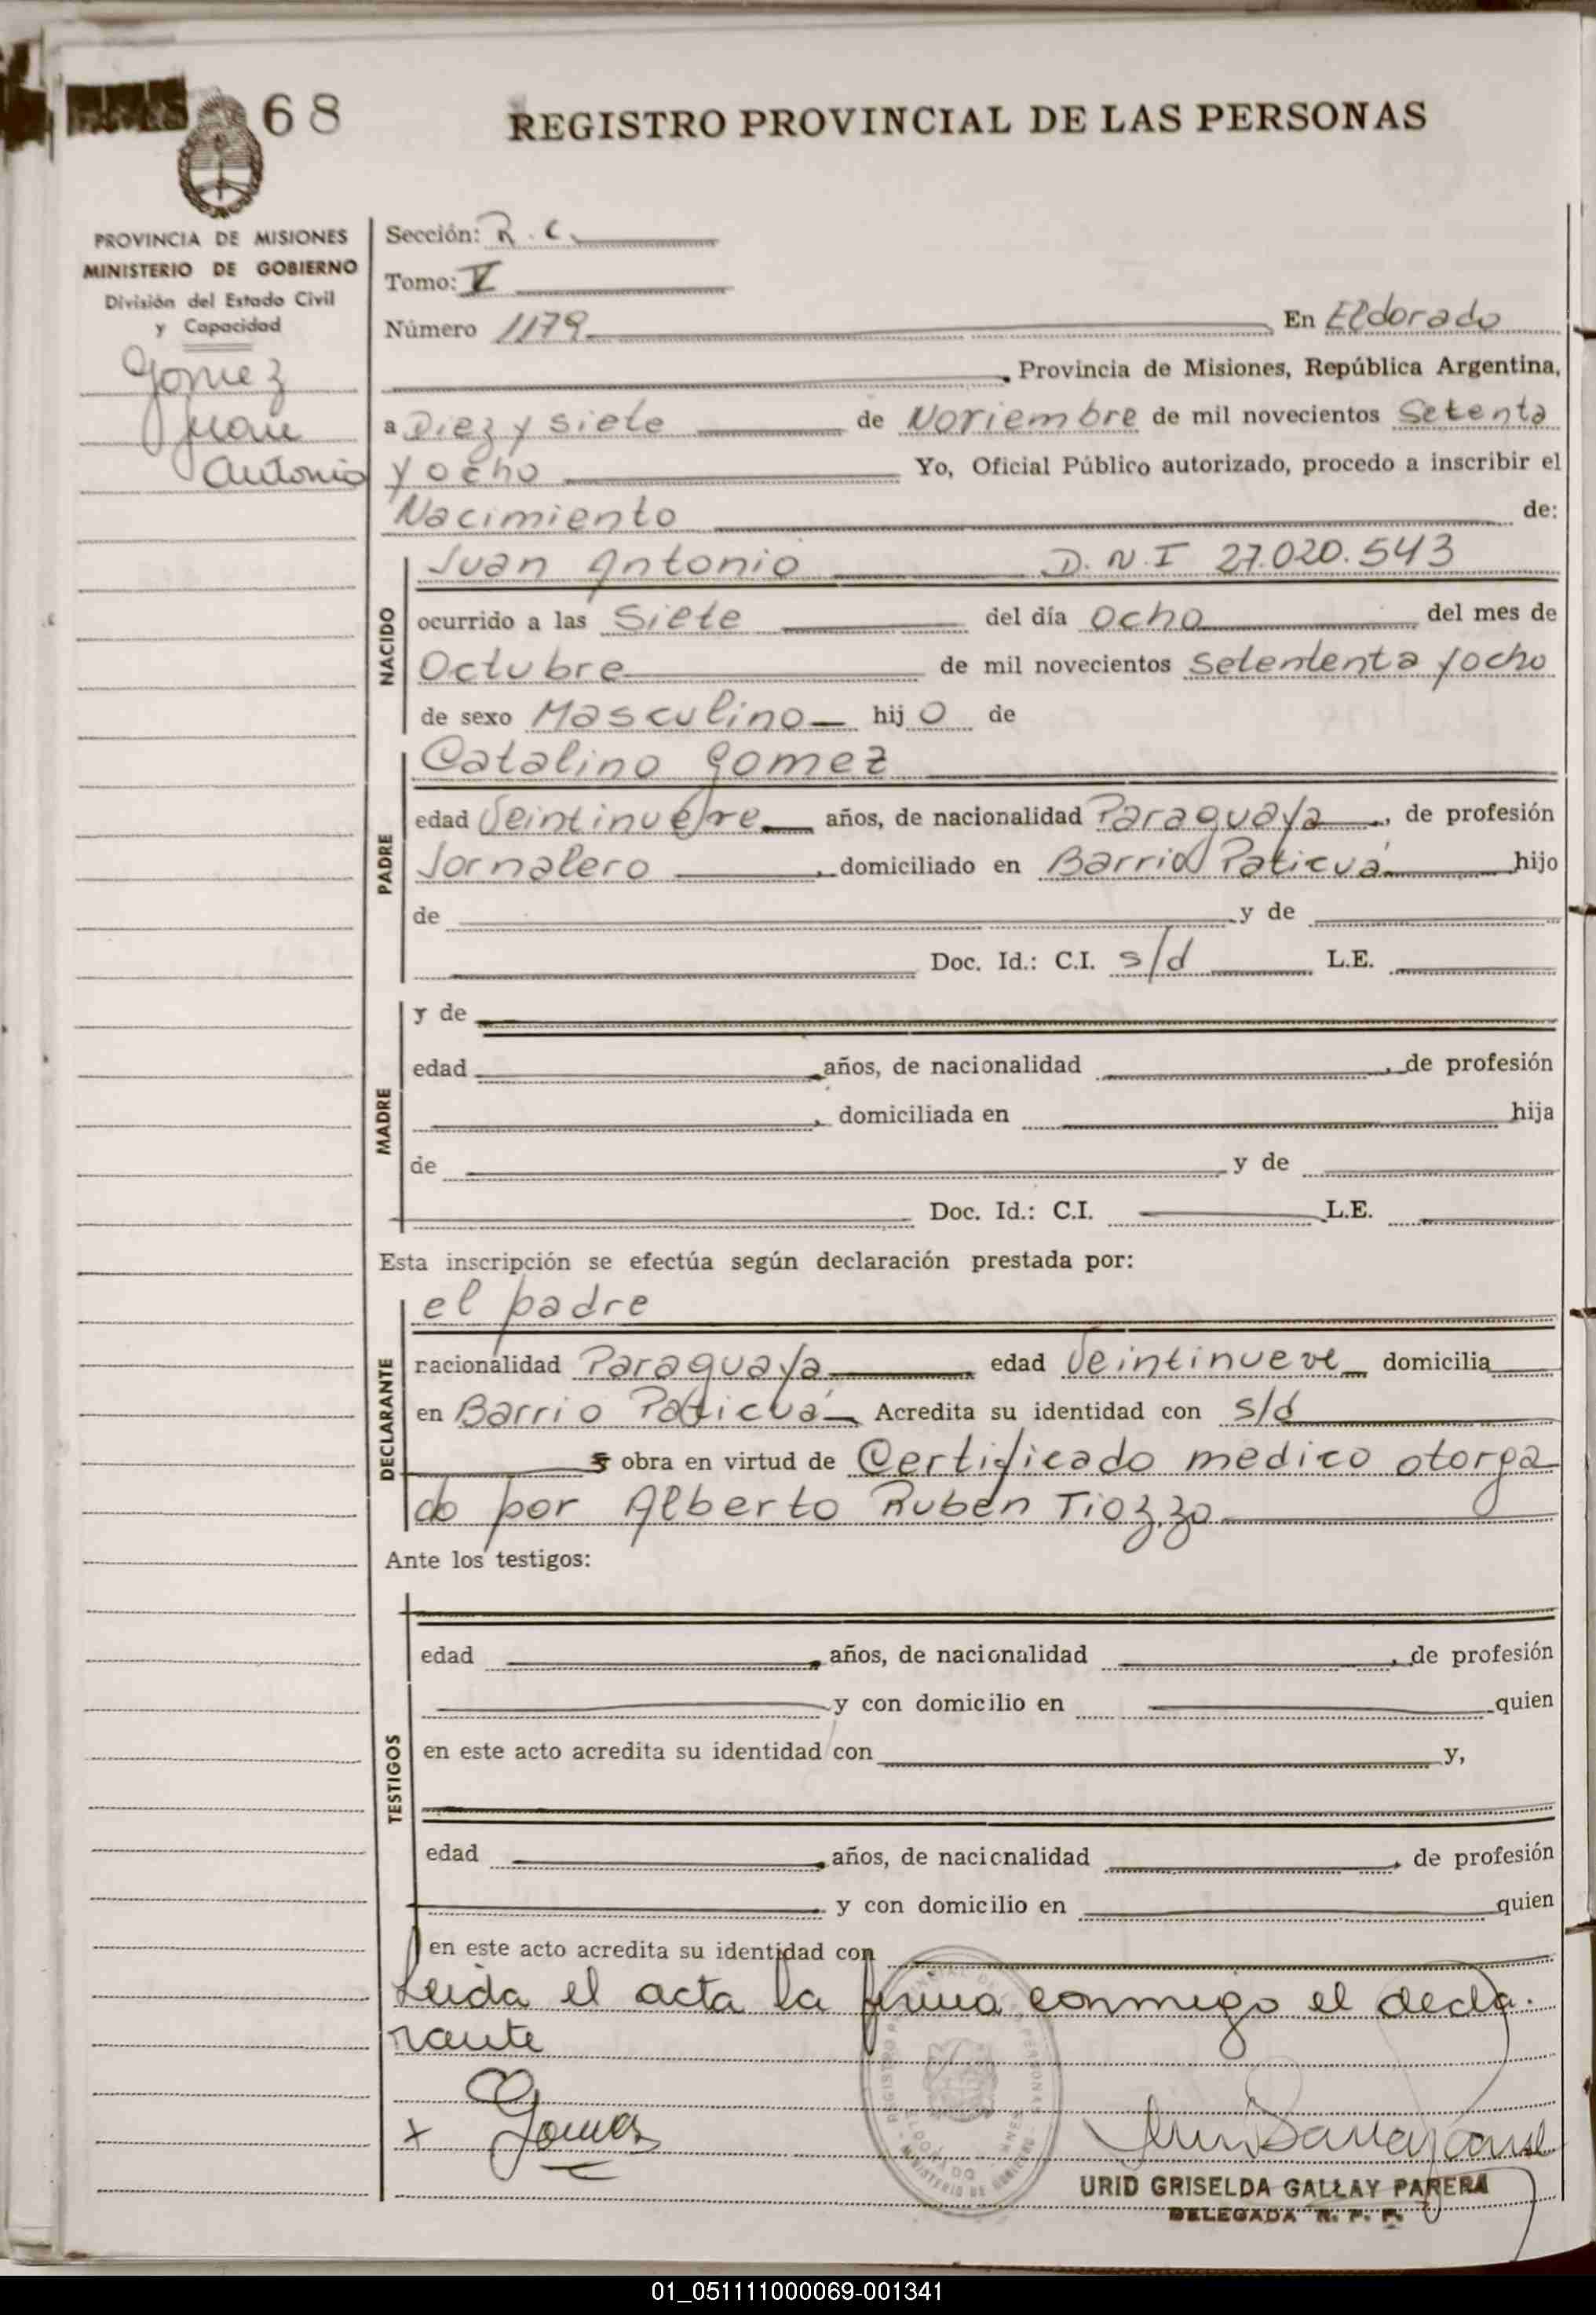 68
REGISTRO PROVINCIAL DE LAS PERSONAS
PROVINCIA DE MISIONES
MINISTERIO DE GOBIERNO
División del Estado Civil
y Capacidad
Gomez
Juan
Antonio
Sección: R.C.
Tomo: V
Número 1179 En Eldorado
, Provincia de Misiones, República Argentina,
a Diez y siete de Noviembre de mil novecientos Setenta
y ocho Yo, Oficial Público autorizado, procedo a inscribir el
Nacimiento de:
NACIDO
Juan Antonio D.N.I 27.020.543
ocurrido a las Siete del día Ocho del mes de
Octubre de mil novecientos Setententa y ocho
de sexo Masculino hijo de
PADRE
Catalino Gomez
edad Veintinueve años, de nacionalidad Paraguaya, de profesión
Jornalero, domiciliado en Barrio Paticuá hijo
de y de
Doc. Id.: C.I. s/d L.E.
MADRE
y de
edad años, de nacionalidad , de profesión
, domiciliada en hija
de y de
Doc. Id.: C.I. L.E.
Esta inscripción se efectúa según declaración prestada por:
DECLARANTE
el padre
nacionalidad Paraguaya edad Veintinueve domicilia
en Barrio Paticuá Acredita su identidad con s/d
obra en virtud de Certificado medico otorga
do por Alberto Ruben Tiozzo
Ante los testigos:
TESTIGOS
edad , años, de nacionalidad , de profesión
y con domicilio en quien
en este acto acredita su identidad con y,
edad , años, de nacionalidad , de profesión
y con domicilio en quien
en este acto acredita su identidad con
Leida el acta la firma conmigo el decla-
rante
x Gomez
REGISTRO PROVINCIAL DE LAS PERSONAS
ELDORADO - MNES
MINISTERIO DE GOBIERNO
URID GRISELDA GALLAY PARERA
DELEGADA R. P. P.
01_051111000069-001341